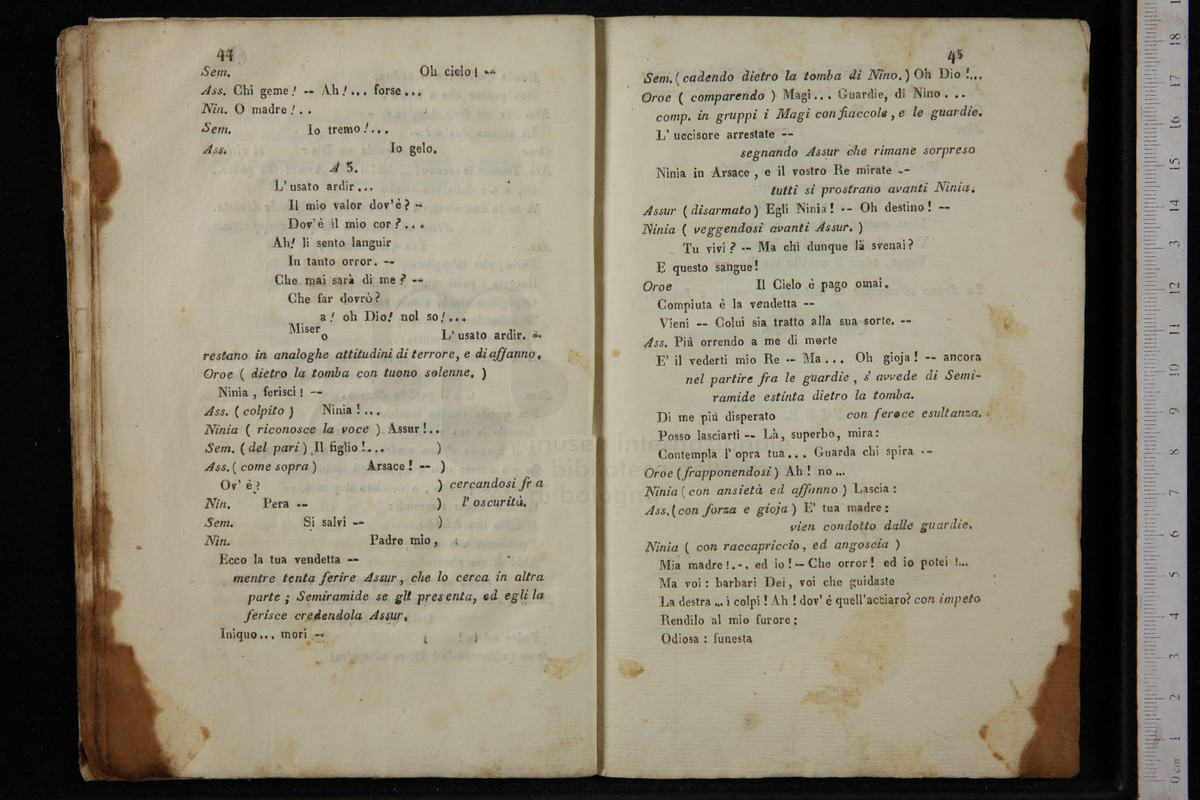 44
Sem. Oh cielo! --
Ass. Chi geme! -- Ah!... forse...
Nin. O madre!..
Sem. Io tremo!...
Ass. Io gelo.
A 3.
L' usato ardir...
Il mio valor dov'è? --
Dov'è il mio cor?...
Ah! li sento languir
In tanto orror. --
Che mai sarà di me? --
Che far dovrò?
a! oh Dio! nol so!...
Miser
o L' usato ardir. --
restano in analoghe attitudini di terrore, e di affanno.
Oroe ( dietro la tomba con tuono solenne. )
Ninia, ferisci! --
Ass. ( colpito ) Ninia!...
Ninia ( riconosce la voce ) Assur!..
Sem. (del pari) Il figlio!... )
Ass. ( come sopra ) Arsace! -- )
Ov' è? ) cercandosi fra
Nin. Pera -- ) l' oscurità.
Sem. Si salvi -- )
Nin. Padre mio,
Ecco la tua vendetta --
mentre tenta ferire Assur, che lo cerca in altra
parte; Semiramide se gli presenta, ed egli la
ferisce credendola Assur.
Iniquo... mori --
45
Sem. (cadendo dietro la tomba di Nino.) Oh Dio!...
Oroe ( comparendo ) Magi... Guardie, di Nino...
comp. in gruppi i Magi con fiaccole, e le guardie.
L' uccisore arrestate --
segnando Assur che rimane sorpreso
Ninia in Arsace, e il vostro Re mirate --
tutti si prostrano avanti Ninia.
Assur (disarmato) Egli Ninia! -- Oh destino! --
Ninia ( veggendosi avanti Assur. )
Tu vivi? -- Ma chi dunque là svenai?
E questo sangue!
Oroe Il Cielo è pago omai.
Compiuta è la vendetta --
Vieni -- Colui sia tratto alla sua sorte. --
Ass. Più orrendo a me di morte
E' il vederti mio Re -- Ma... Oh gioja! -- ancora
nel partire fra le guardie, s' avvede di Semi-
ramide estinta dietro la tomba.
Di me più disperato con feroce esultanza.
Posso lasciarti -- Là, superbo, mira:
Contempla l' opra tua... Guarda chi spira --
Oroe (frapponendosi) Ah! no...
Ninia (con ansietà ed affanno) Lascia:
Ass. (con forza e gioja) E' tua madre:
vien condotto dalle guardie.
Ninia ( con raccapriccio, ed angoscia )
Mia madre!... ed io! -- Che orror! ed io potei!...
Ma voi: barbari Dei, voi che guidaste
La destra... i colpi! Ah! dov' è quell'acciaro? con impeto
Rendilo al mio furore;
Odiosa: funesta
museo internazionale
e biblioteca
di bologna